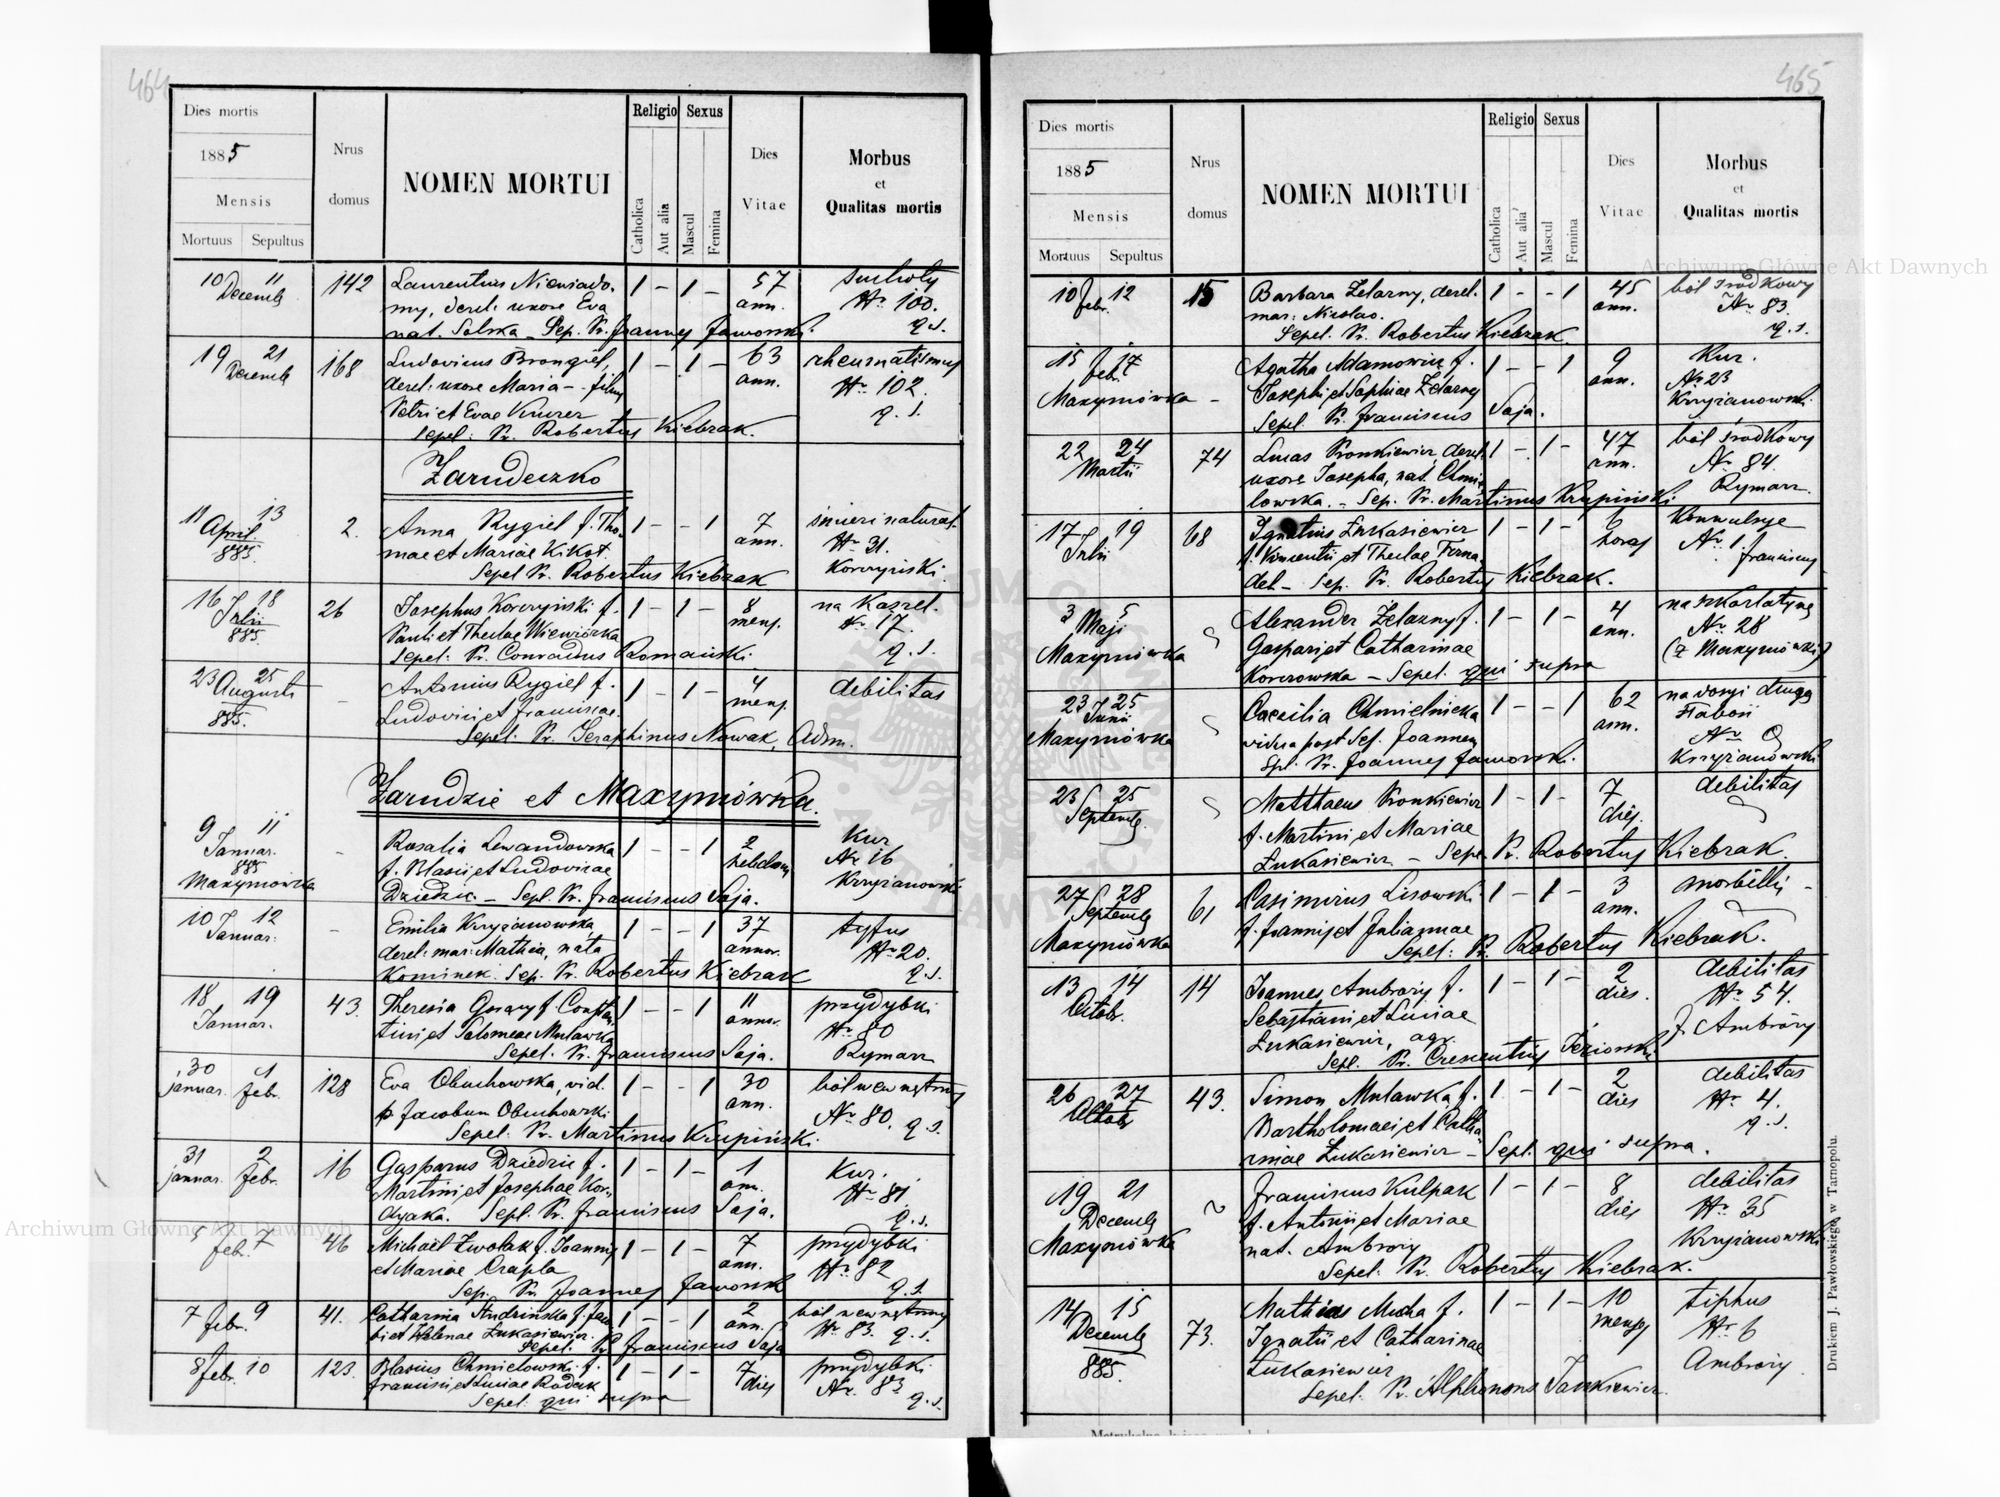 464
Dies mortis
1885
Mensis
Mortuus Sepultus
Nrus
domus
NOMEN MORTUI
Religio
Catholica
Aut alia
Sexus
Mascul
Femina
Dies
Vitae
Morbus
et
Qualitas mortis
10 11
Decemb
142
Laurentius Niewiado-
my, derel: uxore Eva
nat. Solska - Sep. Pr. Joannes Jaworski.
1 - 1 -
57
ann.
suchoty
Nr 100.
q. s.
19 21
Decemb
168
Ludovicus Brongiel,
derel: uxore Maria - filius
Petri et Evae Kurrer
Sepel: Pr. Robertus Kiebzak.
1 - 1 -
63
ann.
rheumatismus
Nr 102.
q. s.
Zarudeczko
11 13
April
885.
2.
Anna Rygiel f. Tho-
mae et Mariae Kikot.
Sepel Pr. Robertus Kiebzak
1 - - 1
7
ann.
śmierć natural.
Nr 31.
Korczyński.
16 18
Julii
885.
26
Josephus Korczyński f.
Pauli et Theclae Wiewiórka
Sepel: Pr. Conradus Romański.
1 - 1 -
8
mens.
na kaszel.
Nr 17.
q. s.
23 25
Augusti
885.
-
Antonius Rygiel f.
Ludovici et Franciscae.
Sepel: Pr. Seraphinus Nowak, Adm.
1 - 1 -
4
mens.
debilitas
Zarudzie et Maxymówka.
9 11
Januar.
885
Maxymówka
-
Rosalia Lewandowska
f. Blasii et Ludovicae
Dziedzic. - Sepl. Pr. Franciscus Saja.
1 - - 1
2
hebdom.
Kur
Nr 16
Krzyżanowski
10 12
Januar.
-
Emilia Krzyżanowska,
derel: mar: Mathia, nata
Kominek. Sep. Pr. Robertus Kiebzak
1 - - 1
37
annor.
tyfus
Nr 20.
q. s.
18 19
Januar.
43.
Theresia Gorary f Constan-
tini et Salomeae Mulawka
Sepel. Pr. Franciscus Saja.
1 - - 1
11
annor.
przydybki
Nr 80
Rymarz
30 1
Januar. Febr.
128
Eva Obuchowska, vid.
p Jacobum Obuchowski
Sepel: Pr. Martinus Krupiński.
1 - - 1
30
ann.
ból wewnętrzny
Nr 80. q. s.
31 2
Januar. Febr.
16
Gasparus Dziedzic f.
Martini et Josephae Kor-
dyaka. Sepl. Pr. Franciscus Saja.
1 - 1 -
1
ann.
Kur.
Nr 81.
q. s.
5 7
Febr.
46
Michael Zwolak f. Joannis
et Mariae Czapla
Sep. Pr. Joannes Jaworski
1 - 1 -
7
ann.
przydybki
Nr 82
q. s.
7 9
Febr.
41.
Catharina Andrińska f. Jaco-
bi et Helenae Łukasiewicz.
Sepel. Pr Franciscus Saja
1 - - 1
2
ann.
ból wewnętrzny
Nr 83. q. s.
8 10
Febr.
123.
Blasius Chmielowski f.
Francisci et Luciae Radecik
Sepel. qui supra
1 - 1 -
7
dies
przydybki
Nr. 83
q. s.
465
Dies mortis
1885
Mensis
Mortuus Sepultus
Nrus
domus
NOMEN MORTUI
Religio
Catholica
Aut alia
Sexus
Mascul
Femina
Dies
Vitae
Morbus
et
Qualitas mortis
10 12
Febr.
15
Barbara Żelazny, derel.
mar: Nicolao.
Sepel. Pr. Robertus Kiebzak.
1 - - 1
45
ann.
ból środkowy
Nr 83.
q. s.
15 17
Febr.
Maxymówka -
Agatha Adamowicz f.
Josephi et Sophiae Żelazny
Sepel. Pr. Franciscus Saja.
1 - - 1
9
ann.
Kur.
Nr 23
Krzyżanowski.
22 24
Martii
74
Lucas Pronkiewicz, derel.
uxore Josepha, nat. Chmie-
lowska. - Sep. Pr. Martinus Krupiński.
1 - 1 -
47
ann.
ból środkowy
Nr 84.
Rymarz.
17 19
Julii
68
Ignatius Łukasiewicz
f. Vincentii et Theclae Ferna-
del - Sep. Pr. Robertus Kiebzak.
1 - 1 -
6
horas
Konwulsye
Nr. 1
Franciscus
3 5
Maji
Maxymówka
Alexander Żelazny f.
Gaspari et Catharinae
Korczowska - Sepel. qui supra
1 - 1 -
4
ann.
na szkarlatynę
Nr. 28
(z Maxymówki)
23 25
Junii
Maxymówka
Caecilia Chmielnicka
vidua post def. Joannem
Spl. Pr. Joannes Jaworski.
1 - - 1
62
ann.
na
Nr
Krzyżanowski
23 25
Septemb.
Matthaeus Pronkiewicz
f. Martini et Mariae
Łukasiewicz - Sepe. Pr. Robertus Kiebzak.
1 - 1 -
7
dies.
debilitas
27 28
Septemb
Maxymówka
61
Casimirus Lisowski
f. Joannis et Juliannae
Sepel: Pr. Robertus Kiebzak.
1 - 1 -
3
ann.
morbilli -
13 14
Octobr.
14
Joannes Ambroży f.
Sebastiani et Luciae
Łukasiewicz, agr.
Sepl. Pr. Crescentius Jeziorski.
1 - 1 -
2
dies.
debilitas
Nr 54.
J. Ambroży
26 27
Octobr
43.
Simon Mulawka f.
Bartholomaei et Catha-
rinae Łukasiewicz - Sepl. qui supra.
1 - 1 -
2
dies
debilitas
Nr. 4.
q. s.
19 21
Decemb
Maxymówka
Franciscus Kulpak
f. Antonii et Mariae
nat. Ambroży
Sepel: Pr. Robertus Kiebzak.
1 - 1 -
8
dies
debilitas
Nr. 35
Krzyżanowski
14 15
Decemb
885.
73.
Mathias Mucha f.
Ignatii et Catharinae
Łukasiewicz
Sepel. Pr. Alphonsus Jankiewicz.
1 - 1 -
10
mens.
tiphus
Nr 6
Ambroży.
Drukiem J. Pawłowskiego, w Tarnopolu.
Archiwum Główne Akt Dawnych
Archiwum Główne Akt Dawnych